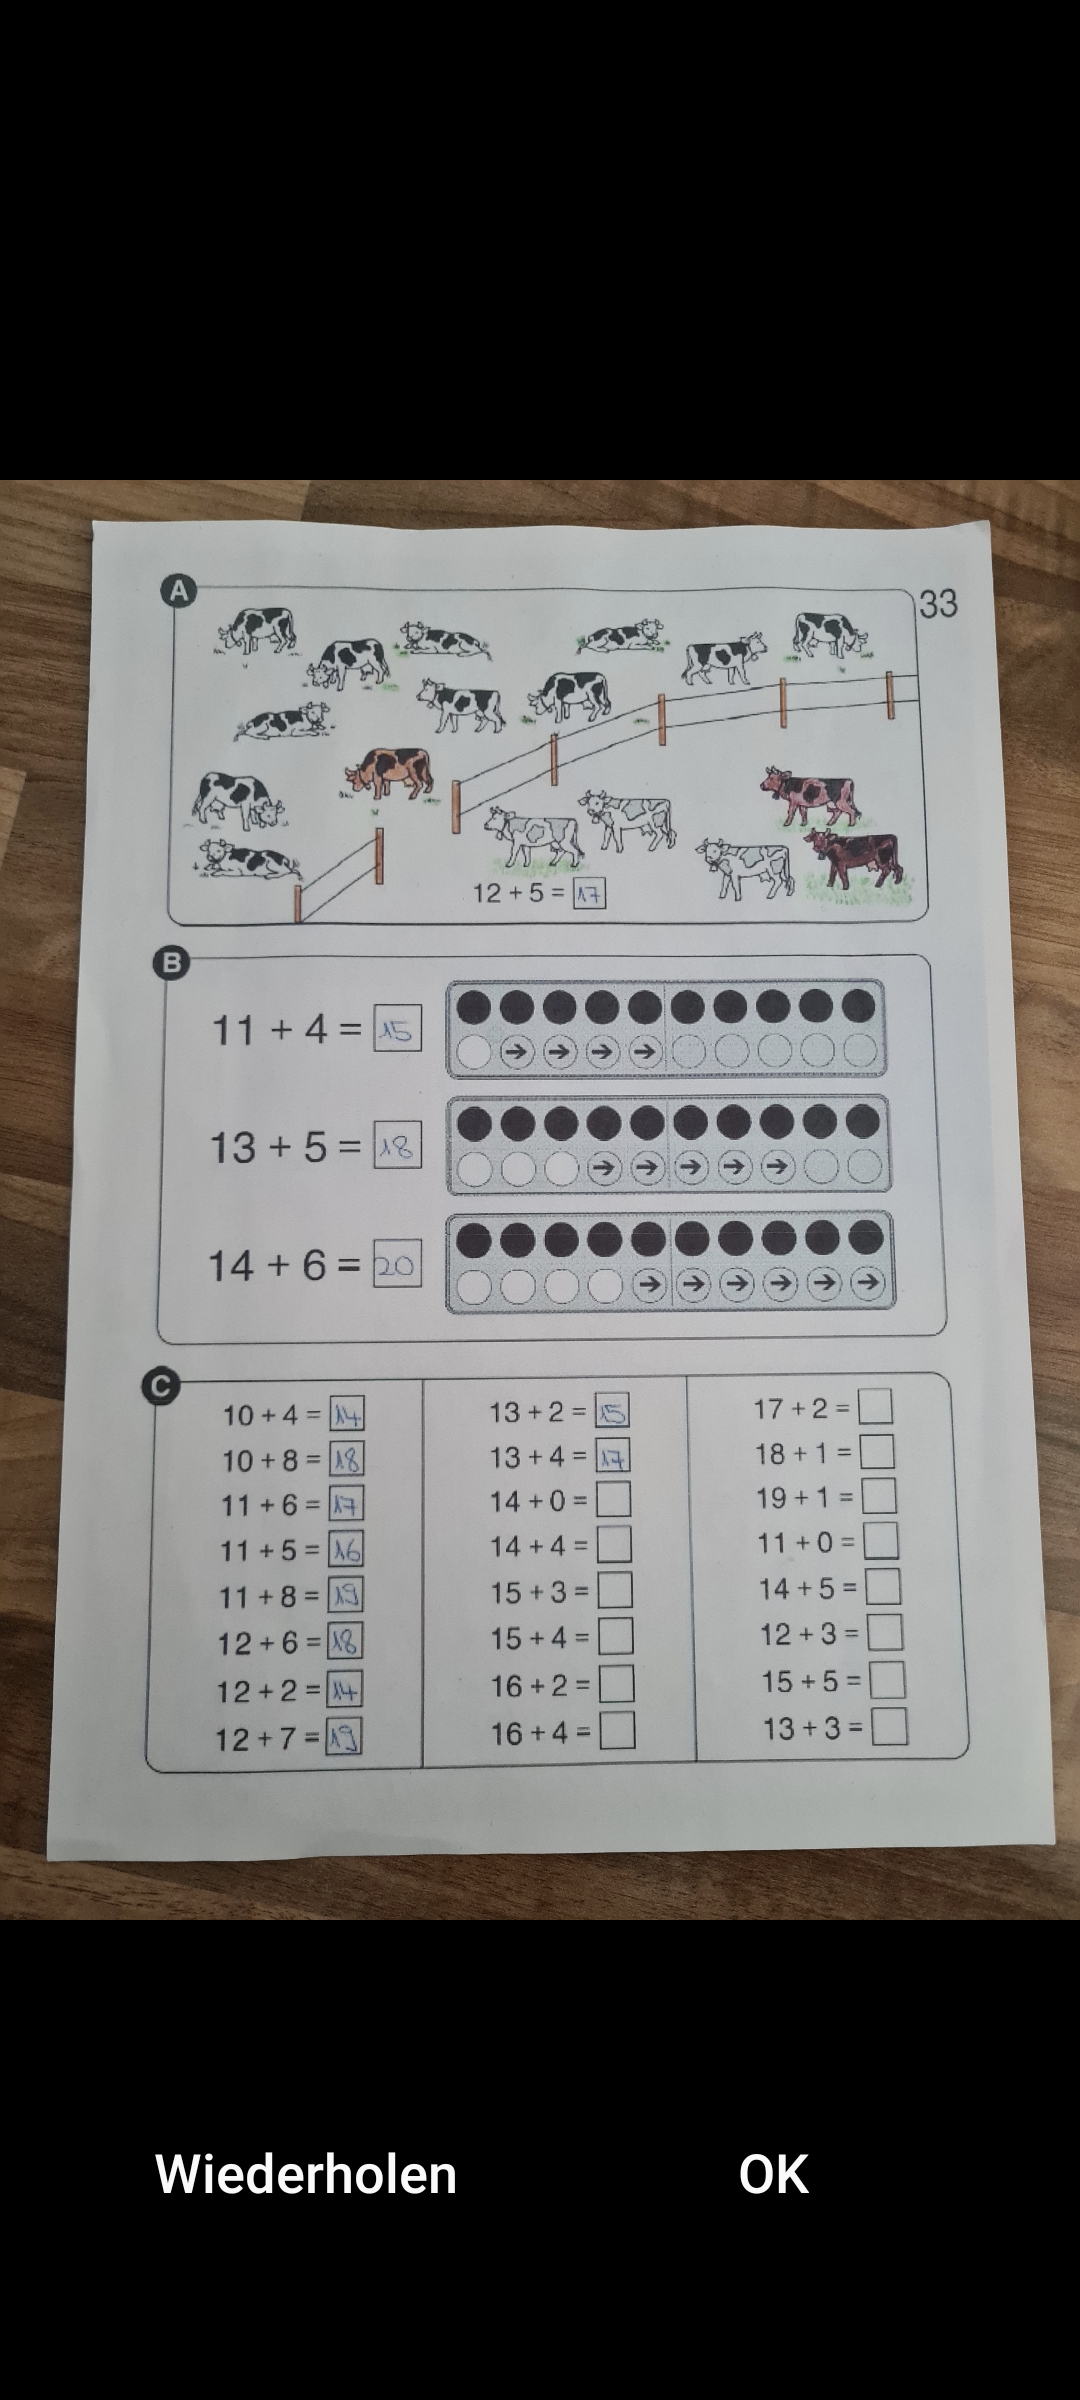 A
33
12 + 5 = 17
B
11 + 4 = 15
13 + 5 = 18
14 + 6 = 20
C
10 + 4 = 14
10 + 8 = 18
11 + 6 = 17
11 + 5 = 16
11 + 8 = 19
12 + 6 = 18
12 + 2 = 14
12 + 7 = 19
13 + 2 = 15
13 + 4 = 17
14 + 0 =
14 + 4 =
15 + 3 =
15 + 4 =
16 + 2 =
16 + 4 =
17 + 2 =
18 + 1 =
19 + 1 =
11 + 0 =
14 + 5 =
12 + 3 =
15 + 5 =
13 + 3 =
Wiederholen OK